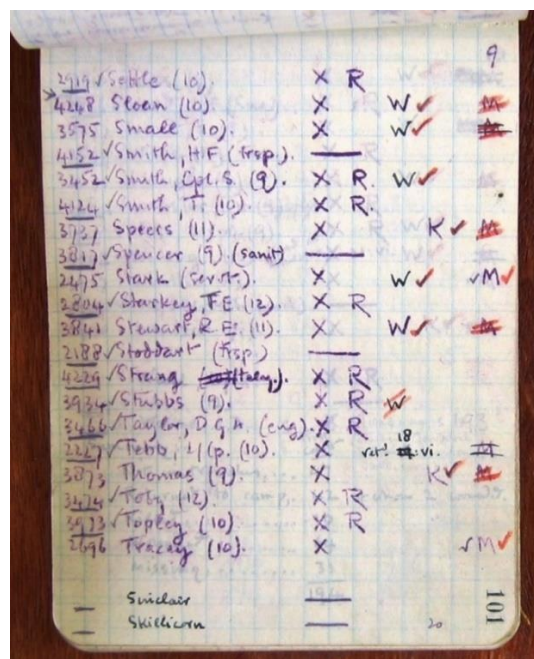 9
2919 √ Settle (10). X R
4248 Sloan (10). X W ✓ M
3575 Small (10). X W ✓ M
4152 √ Smith, H.F (trsp.). —
3452 √ Smith, Cpl. S. (9). X R. W ✓
4124 √ Smith, T. (10). X R.
3737 Specs (11). X K ✓ M
3817 √ Spencer (9) (sanit) —
2475 Stark X W ✓ √M ✓
2804 √ Starkey, F.E (12). X R
3841 Stewart, R.E. (11). X W ✓ M
2188 √ Stoddart (trsp) —
4229 √ Strang X R
3934 √ Stubbs (9). X R W
3466 √ Taylor, D.G.H. (eng). X R
2227 √ Tebb, (10). X 18 vi. M
3873 Thomas (9). X K ✓ M
3474 √ Toby (12). X R
3973 √ Topley (10). X R
2696 Tracey (10). X √M ✓
— Sinclair —
— Skillicorn — 20
101